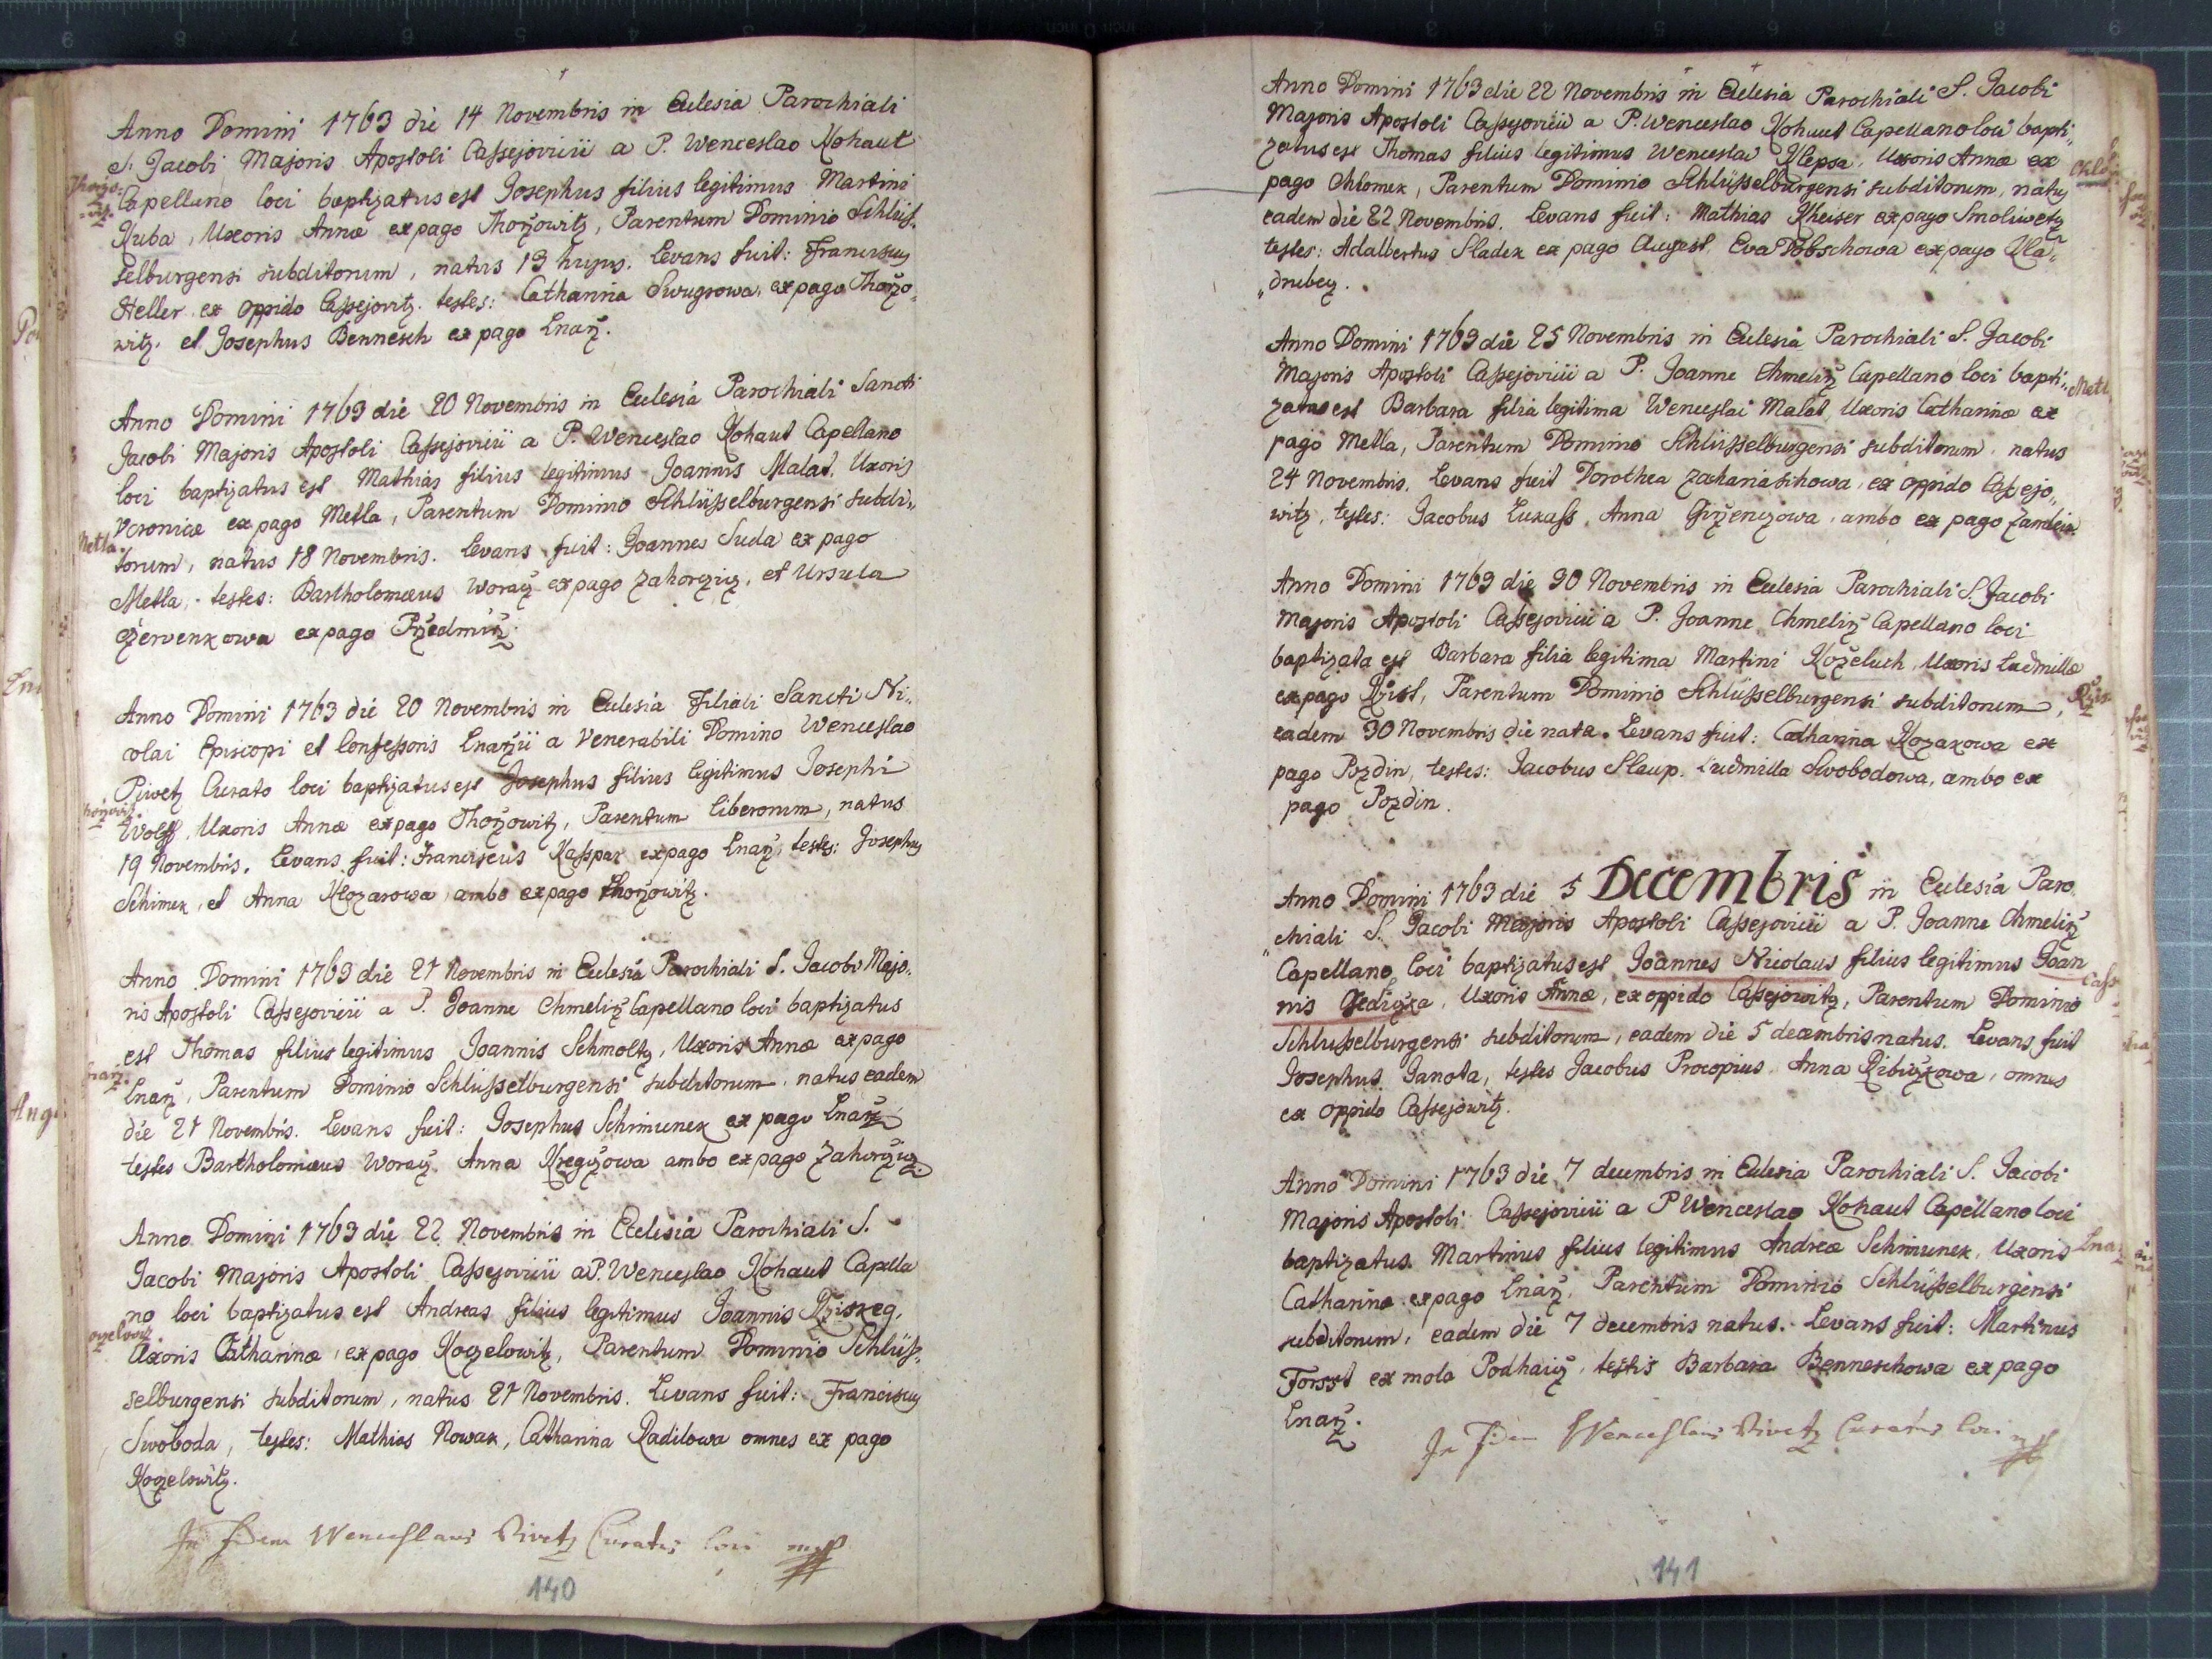 Anno Domini 1763 die 14 Novembris in Eclesia Parochiali
S. Jacobi Majoris Apostoli Cassejovicii a P. Wenceslao Kohaut
Capellano loci baptizatus est Josephus filius legitimus Martini
Kuba, Uxoris Annæ ex pago Thorzowitz, Parentum Dominio Schlüs„
selburgensi subditorum, natus 13 hujus. Levans fuit: Franciscus
Heller ex oppido Cassejovitz. testes: Catharina Swugrowa, ex pago Thorzo„
witz. et Josephus Bennesch ex pago Lnarz.
Anno Domini 1763 die 20 Novembris in Eclesia Parochiali Sancti
Jacobi Majoris Apostoli Cassejovicii a P. Wenceslao Kohaut Capellano
loci baptizatus est Mathias filius legitimus Joannis Malat, Uxoris
Veronicæ ex pago Metla, Parentum Dominio Schlüsselburgensi subdi„
Metla
torum, natus 18 Novembris. Levans fuit: Joannes Suda ex pago
Metla, testes: Bartholomæus Woracz ex pago Zahorziz, et Ursula
Czervenkowa ex pago Przedmirz.
Anno Domini 1763 die 20 Novembris in Eclesia Filiali Sancti Ni„
colai Episcopi et Confessoris Lnarzii a Venerabili Domino Wenceslao
Piwetz Curato loci baptizatus est Josephus filius legitimus Josephi
Wolff, Uxoris Annæ ex pago Thorzowitz, Parentum liberorum, natus
19 Novembris. Levans fuit: Franciscus Kasspar ex pago Lnarz, testes: Josephus
Schimek, et Anna Klozarowa, ambo ex pago Thorzowitz.
Anno Domini 1763 die 21 Novembris in Eclesia Parochiali S. Jacobi Majo„
ris Apostoli Cassejovicii a P. Joanne Chmelirz Capellano loci baptizatus
est Thomas filius legitimus Joannis Schmoltz, Uxoris Annæ ex pago
Lnarz, Parentum Dominio Schlüsselburgensi subditorum, natus eadem
die 21 Novembris. Levans fuit: Josephus Schimunek ex pago Lnarz
testes Bartholomæus Woracz. Anna Kregczowa ambo ex pago Zahorzicz.
Anno Domini 1763 die 22 Novembris in Eclesia Parochiali S.
Jacobi Majoris Apostoli Cassejovicii a P. Wenceslao Kohaut Capella
no loci baptizatus est Andreas filius legitimus Joannis Rziskeg,
Uxoris Catharinæ, ex pago Kozelowitz, Parentum Dominio Schlüs„
selburgensi subditorum, natus 21 Novembris. Levans fuit: Franciscus
Swoboda, testes: Mathias Nowak, Catharina Radilowa omnes ex pago
Kozelowitz.
Wenceslaus Piwetz Curatus loci
140
Anno Domini 1763 die 22 Novembris in Eclesia Parochiali S. Jacobi
Majoris Apostoli Cassejovicii a P. Wenceslao Kohaut Capellano loci bapti„
zatus est Thomas filius legitimus Wenceslai Klepsa, Uxoris Annæ ex
pago Chlomek, Parentum Dominio Schlüsselburgensi subditorum, natus
eadem die 22 Novembris. Levans fuit: Mathias Kheiser ex pago Smoliwetz
testes: Adalbertus Sladek ex pago Augest. Eva Pobschowa ex pago Wla„
„drubcz.
Anno Domini 1763 die 25 Novembris in Eclesia Parochiali S. Jacobi
Majoris Apostoli Cassejovicii a P. Joanne Chmelirz Capellano loci bapti„
zatus est Barbara filia legitima Wenceslai Malat, Uxoris Catharinæ ex
pago Metla, Parentum Dominio Schlüsselburgensi subditorum, natus
24 Novembris. Levans fuit Dorothea Zachariaschowa, ex oppido Cassejo„
witz, testes: Jacobus Lukass, Anna Girzenczowa, ambo ex pago
Anno Domini 1763 die 30 Novembris in Eclesia Parochiali S. Jacobi
Majoris Apostoli Cassejovicii a P. Joanne Chmelirz Capellano loci
baptizata est Barbara filia legitima Martini Kozeluch, Uxoris Ludmillæ
ex pago Ujist, Parentum Dominio Schlüsselburgensi subditorum,
eadem 30 Novembris die nata. Levans fuit: Catharina Kozakowa ex
pago Pozdin, testes: Jacobus Slaup. Ludmilla Swobodowa, ambo ex
pago Pozdin.
Anno Domini 1763 die 5 Decembris in Eclesia Paro
„chiali S. Jacobi Majoris Apostoli Cassejovicii a P. Joanne Chmelirz
Capellano loci baptizatus est Joannes Nicolaus filius legitimus Joan
nis Gedliczka, Uxoris Annæ, ex oppido Cassejowitz, Parentum Dominio
Schlusselburgensi subditorum, eadem die 5 decembris natus. Levans fuit
Josephus Janota, testes Jacobus Procopius. Anna Ribiczkowa, omnes
ex oppido Cassejowitz.
Anno Domini 1763 die 7 decembris in Eclesia Parochiali S. Jacobi
Majoris Apostoli Cassejovicii a P Wenceslao Kohaut Capellano loci
baptizatus. Martinus filius legitimus Andreæ Schimunek, Uxoris
Catharinæ ex pago Lnarz, Parentum Dominio Schlüsselburgensi
subditorum, eadem die 7 decembris natus. Levans fuit: Martinus
Forsst ex mola Podhaicz, testis Barbara Benneschowa ex pago
Lnarz.
Wenceslaus Piwetz Curatus loci
141